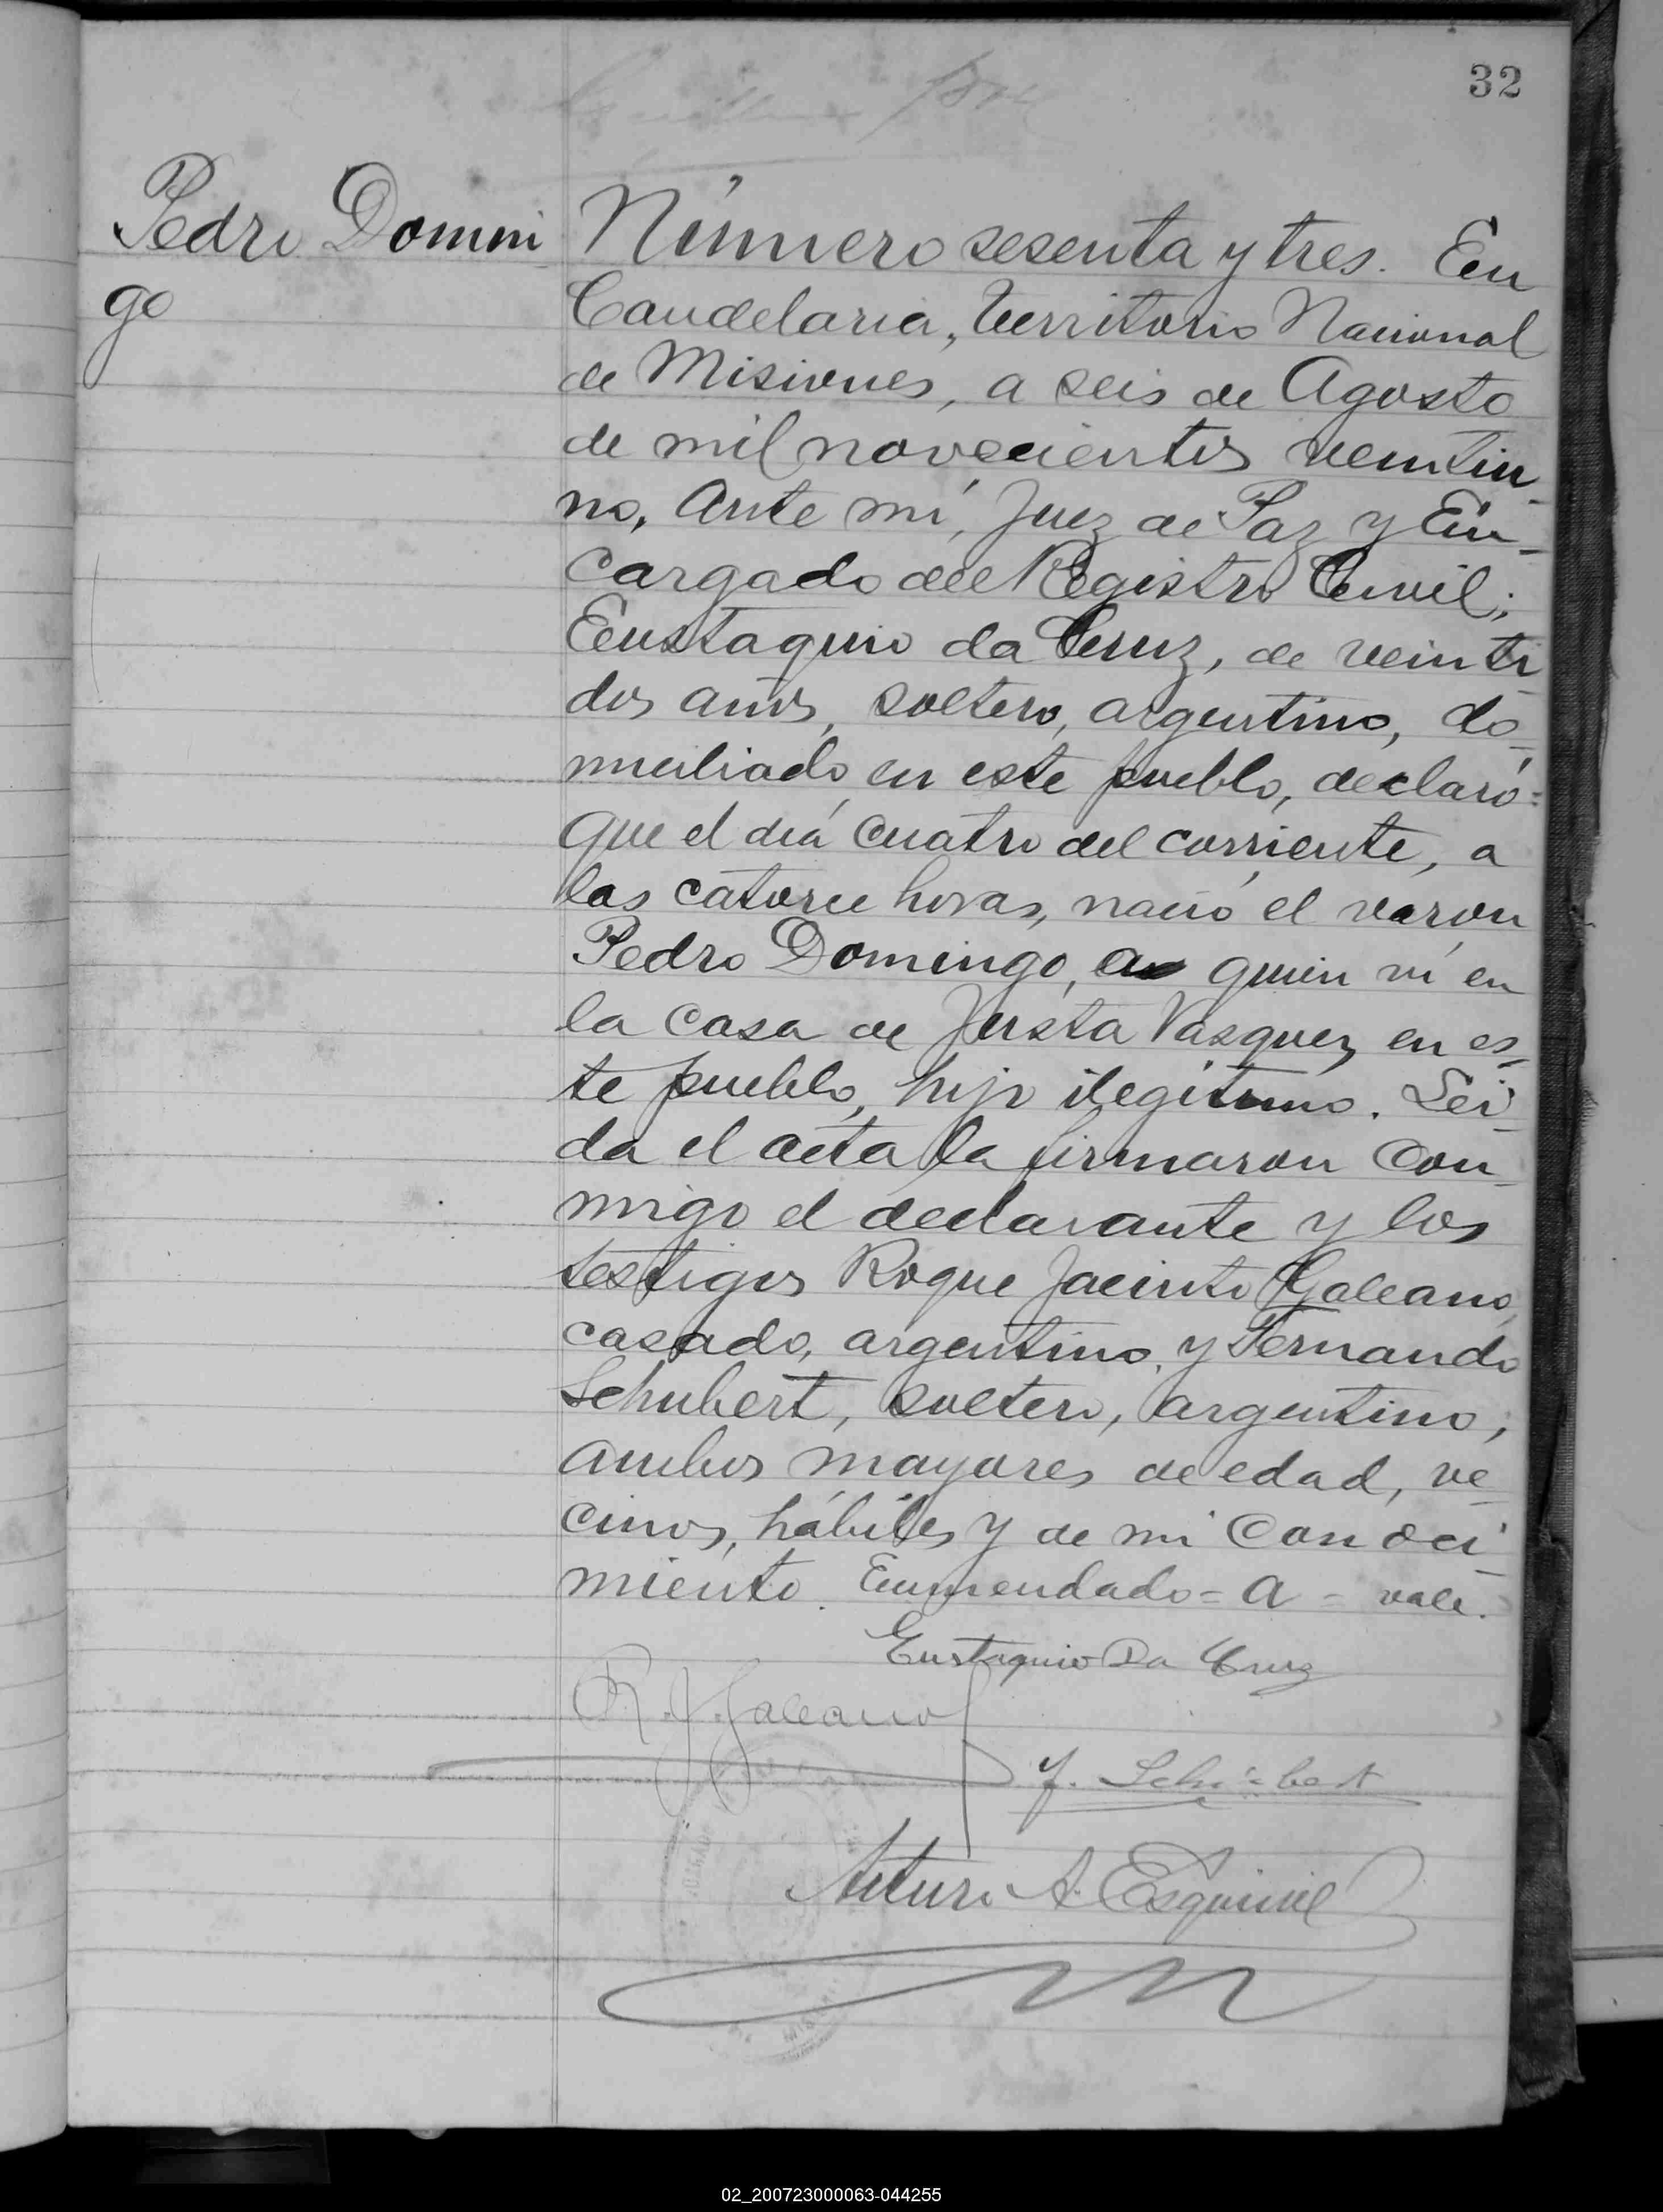 32
Pedro Domin
go
Número sesenta y tres. En
Candelaria, Territorio Nacional
de Misiones, a seis de Agosto
de mil novecientos veintiu-
no, Ante mí, Juez de Paz y En-
cargado del Registro Civil;
Eustaquio da Cruz, de veinti-
dos años, soltero, argentino, do-
miciliado en este pueblo, declaró:
Que el día cuatro del corriente, a
las catorce horas, nació el varon
Pedro Domingo, a quien ví en
la casa de Justa Vasquez, en es-
te pueblo, hijo ilegítimo. Leí-
da el acta la firmaron con-
migo el declarante y los
testigos Roque Jacinto Galeano,
casado, argentino, y Fernando
Schubert, soltero, argentino,
ambos mayores de edad, ve-
cinos, hábiles y de mi conoci-
miento. Enmendado = a = vale.
Eustaquio Da Cruz
R. J. Galeano
F. Schubert
Arturo A. Esquivel
02_200723000063-044255